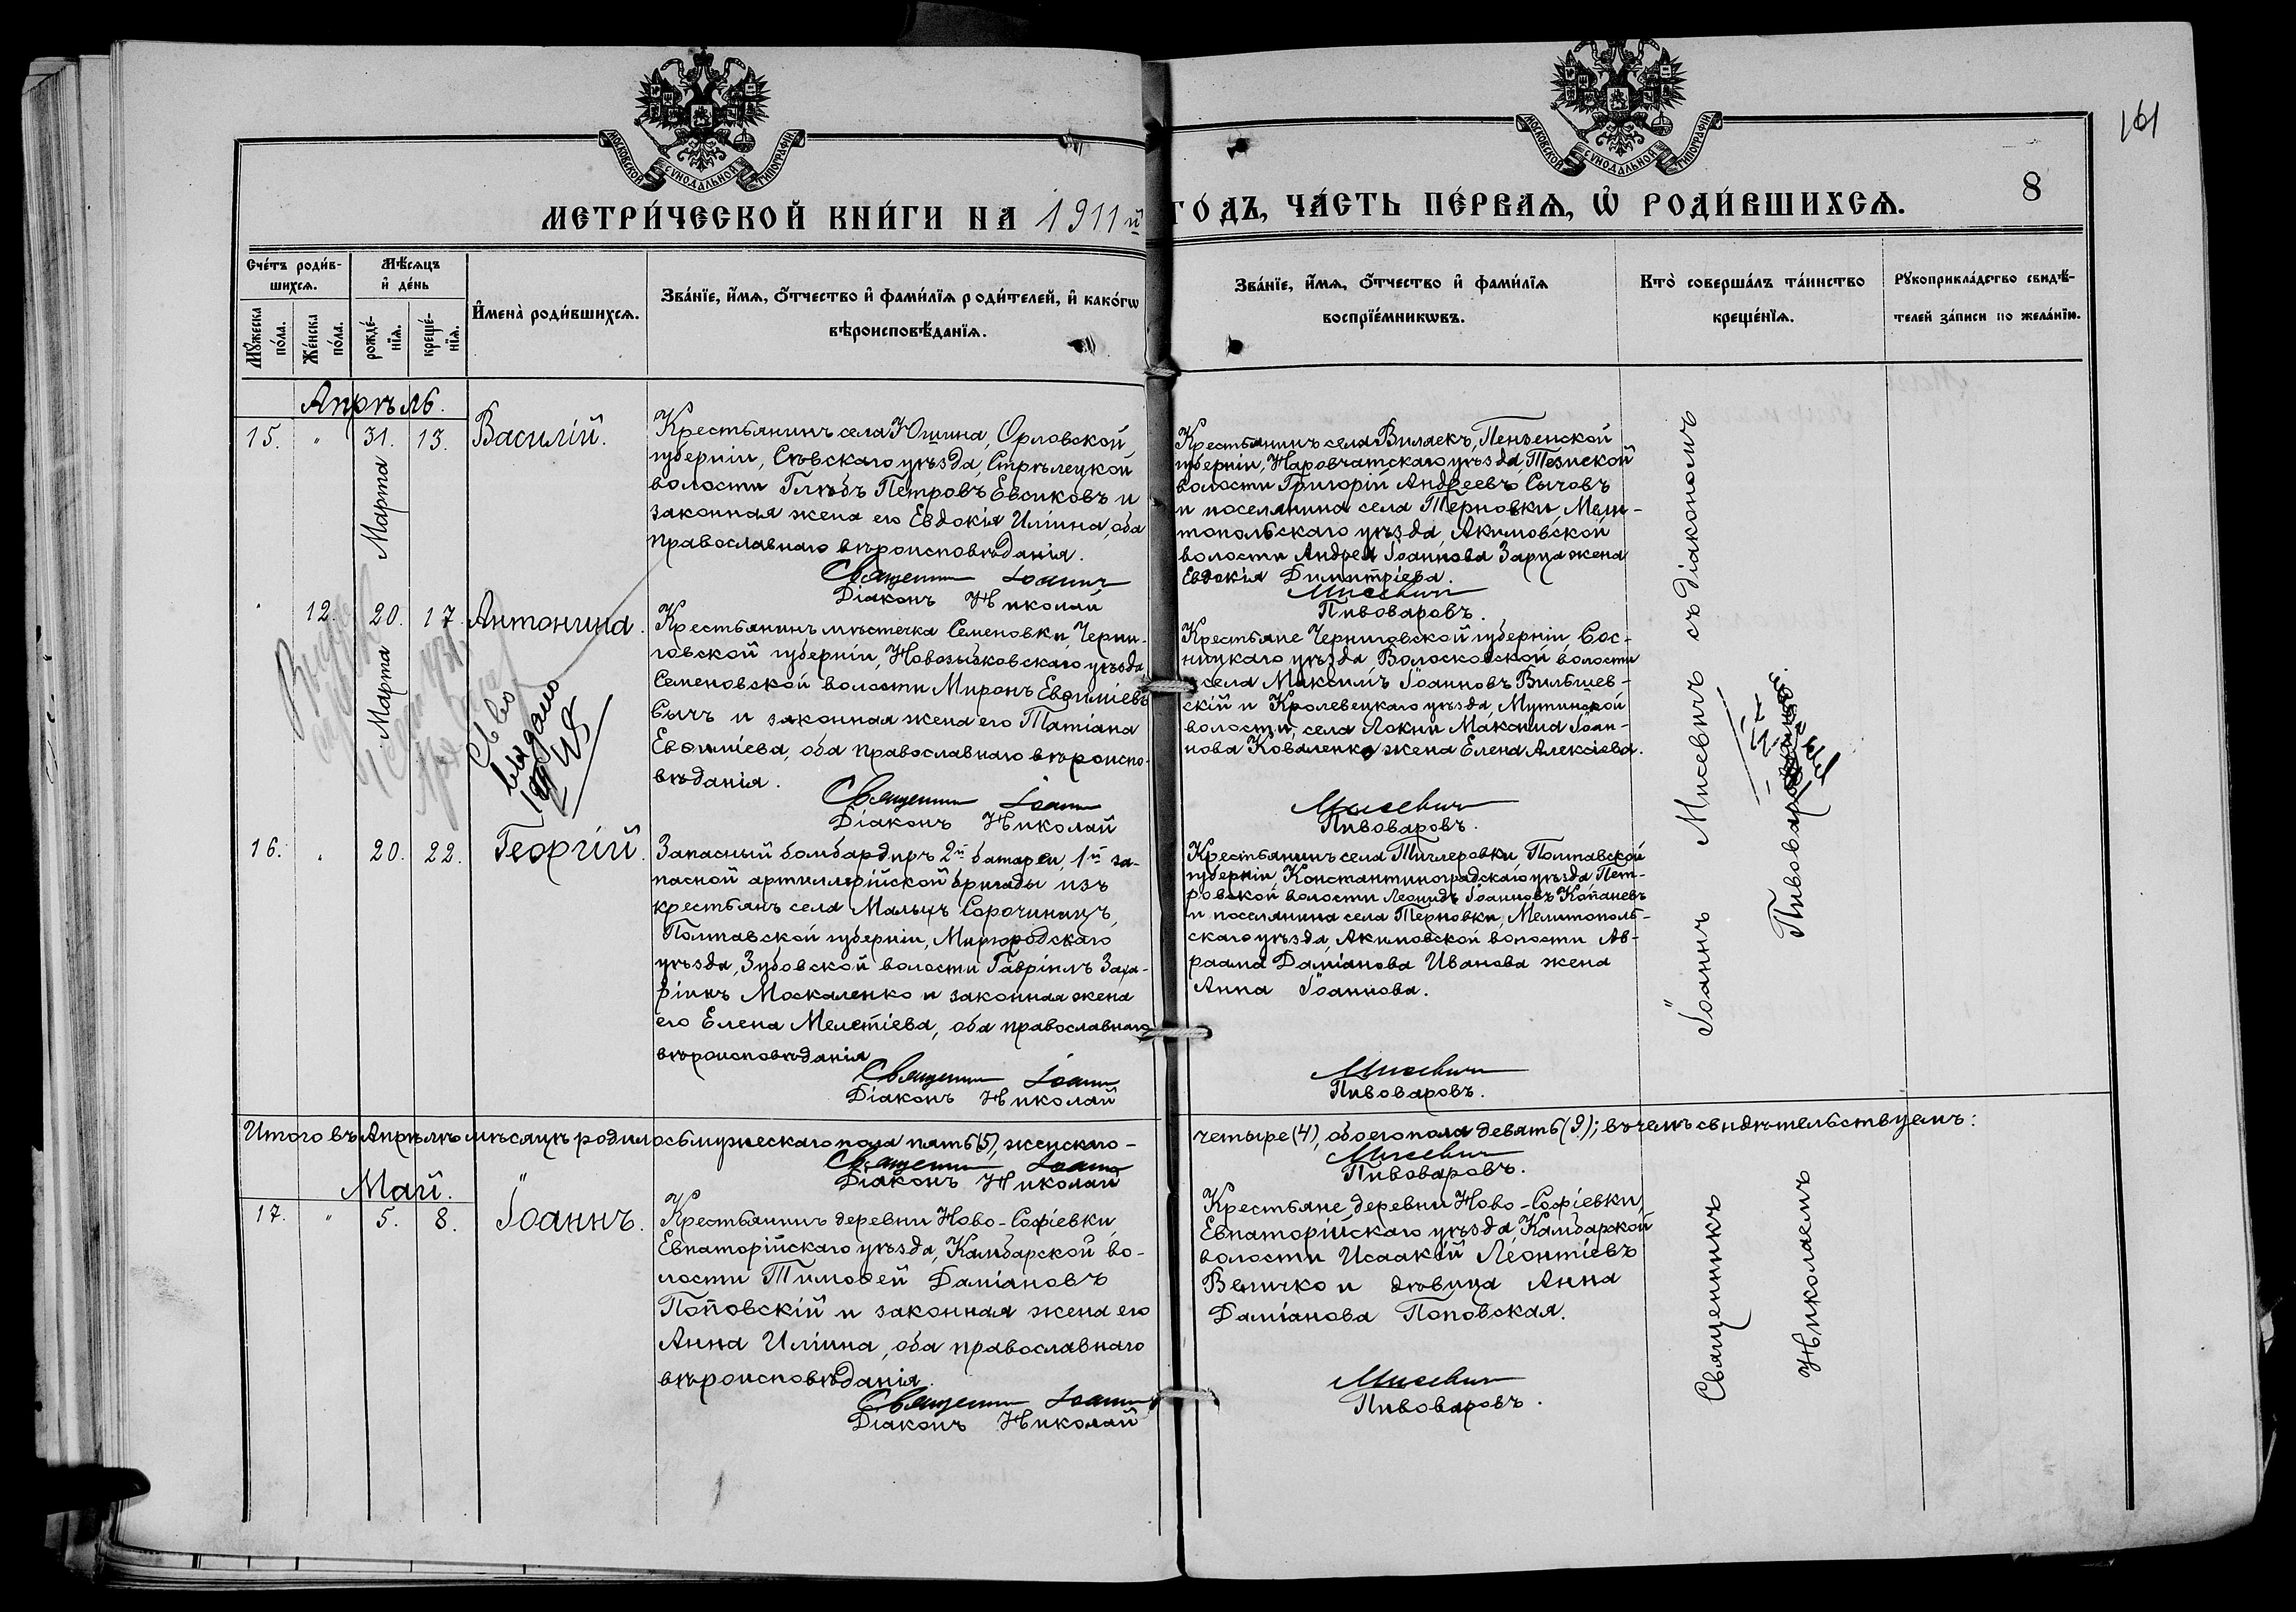 161
МОСКОВСКОЙ СѴНОДАЛЬНОЙ ТИПОГРАФІИ
МОСКОВСКОЙ СѴНОДАЛЬНОЙ ТИПОГРАФІИ
МЕТРИ́ЧЕСКОЙ КНИ́ГИ НА 1911й ГО́ДЪ, ЧА́СТЬ ПЕ́РВАѦ, Ѡ҆ РОДИ́ВШИХСѦ.
8
Сче́тъ роди́в-
шихсѧ.
Мꙋ́жеска по́ла.
Же́нска по́ла.
Мѣ́сѧцъ
и҆ де́нь
рожде́-
нїѧ.
креще́-
нїѧ.
И҆мена̀ роди́вшихсѧ.
Зва́нїе, и҆́мѧ, ѻ҆́тчество и҆ фами́лїѧ роди́телей, и҆ како́гѡ
вѣроисповѣ́данїѧ.
Зва́нїе, и҆́мѧ, ѻ҆́тчество и҆ фами́лїѧ
воспрїе́мникѡвъ.
Кто̀ соверша́лъ та́инство
креще́нїѧ.
Рꙋкоприкла́дство свидѣ́-
телей за́писи по жела́нїю.
Апрѣль.
15. " 31. Марта 13. Василій.
Крестьянинъ села Юшина, Орловской
губерніи, Сѣвскаго уѣзда, Стрѣлецкой
волости Глѣбъ Петровъ Евсиковъ и
законная жена его Евдокія Иліина, оба
православнаго вѣроисповѣданія.
Крестьянинъ села Виляекъ, Пензенской
губерніи, Наровчатскаго уѣзда,
волости Григорій Андреевъ Сычовъ
и поселянина села Терновки, Мели-
топольскаго уѣзда, Акимовской
волости Андрея Іоаннова Заруа жена
Евдокія Димитріева.
Священникъ Іоаннъ Мисевичъ
Діаконъ Николай Пивоваровъ.
12. 20. Марта 17. Антонина.
Крестьянинъ мѣстечка Семеновки, Черни-
говской губерніи, Новозыбковскаго уѣзда
Семеновской волости Миронъ Евѳиміевъ
Сычъ и законная жена его Татіана
Евѳиміева, оба православнаго вѣроиспо-
вѣданія.
Крестьяне Черниговской губерніи Сос-
ницкаго уѣзда Волосковской волости
села Максимъ Іоанновъ Вильшев-
скій и Кролевецкаго уѣзда, Мутинской
волости, села Локни Максима Іоан-
нова Коваленко жена Елена Алексіева.
Св-во
выдано
Священникъ Іоаннъ Мисевичъ
Діаконъ Николай Пивоваровъ.
16. " 20. 22. Георгій.
Запасный бомбардиръ 2й батареи, 1й за-
пасной артиллерійской бригады изъ
крестьянъ села Малыхъ Сорочинецъ
Полтавской губерніи, Миргородскаго
уѣзда, Зубовской волости Гавріилъ Заха-
ріинъ Москаленко и законная жена
его Елена Мелетіева, оба православнаго
вѣроисповѣданія
Крестьянинъ села Полтавской
губерніи Константиноградскаго уѣзда Пет-
ровской волости Леонидъ Іоанновъ Копаневъ
и поселянина села Терновки, Мелитополь-
скаго уѣзда, Акимовской волости Ав-
раама Даміанова Иванова жена
Анна Іоаннова.
Священникъ Іоаннъ Мисевичъ
Діаконъ Николай Пивоваровъ.
Итого въ Апрѣлѣ мѣсяцѣ родилось мужескаго пола пять (5), женскаго - четыре (4), обоего пола девять (9); въ чемъ свидѣтельствуемъ:
Священникъ Іоаннъ Мисевичъ
Діаконъ Николай Пивоваровъ.
Май.
17. " 5. 8. Іоаннъ.
Крестьянинъ деревни Ново-Софіевки,
Евпаторійскаго уѣзда, Камбарской во-
лости Тимоѳей Даміановъ
Поповскій и законная жена его
Анна Иліина, оба православнаго
вѣроисповѣданія.
Крестьяне деревни Ново-Софіевки,
Евпаторійскаго уѣзда, Камбарской
волости Исаакій Леонтіевъ
Величко и дѣвица Анна
Даміанова Поповская.
Священникъ Іоаннъ Мисевичъ
Діаконъ Николай Пивоваровъ.
Священникъ Іоаннъ Мисевичъ съ діакономъ
Николаемъ Пивоваровымъ.